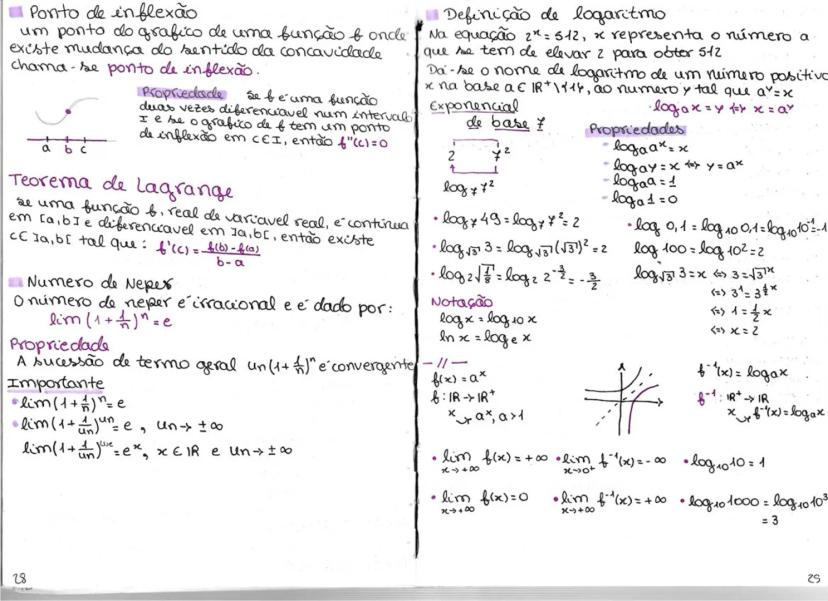 Ponto de inflexão
um ponto do grafico de uma função f onde
existe mudança do sentido da concavidade
chama-se ponto de inflexão.
Propriedade se f é uma função
duas vezes diferenciavel num intervalo
I e se o grafico de f tem um ponto
de inflexão em c∈I, então f''(c)=0
a b c
Teorema de Lagrange
se uma função f, real de variavel real, é continua
em [a,b] e diferenciavel em ]a,b[, então existe
c∈]a,b[ tal que: f'(c) = f(b)-f(a) / b-a
Numero de Neper
O número de neper é irracional e é dado por:
lim (1+1/n)^n = e
Propriedade
A sucessão de termo geral un(1+1/n)^n é convergente
Importante
lim(1+1/n)^n = e
lim(1+1/un)^un = e, un→ ±∞
= e^x, x ∈ IR e un→ ±∞
28
Definição de logaritmo
Na equação 2^x = 512, x representa o número a
que se tem de elevar 2 para obter 512
Dá-se o nome de logaritmo de um número positivo
x na base a ∈ IR⁺\{1}, ao numero y tal que a^y=x
log_a x = y ⇔ x = a^y
Exponencial
de base 7
2 7²
log₇ 7²
Propriedades
log_a a^x = x
log_a y = x ⇔ y = a^x
log_a a = 1
log_a 1 = 0
log₇ 49 = log₇ 7² = 2
log_√3 3 = log_√3 (√3)² = 2
log₂ √(1/8) = log₂ 2^(-3/2) = -3/2
log 0,1 = log₁₀ 0,1 = log₁₀ 10⁻¹ = -1
log 100 = log 10² = 2
log_√3 3 = x ⇔ 3 = √3^x
⇔ 3¹ = 3^(½x)
⇔ 1 = ½ x
⇔ x = 2
Notação
log x = log₁₀ x
ln x = log_e x
—//—
f(x) = a^x
f: IR → IR⁺
x ⤳ a^x, a>1
f⁻¹(x) = log_a x
f⁻¹: IR⁺ → IR
x ⤳ f⁻¹(x) = log_a x
lim x→+∞ f(x) = +∞
lim x→0⁺ f⁻¹(x) = -∞
log₁₀ 10 = 1
lim x→+∞ f(x) = 0
lim x→+∞ f⁻¹(x) = +∞
log₁₀ 1000 = log₁₀ 10³
= 3